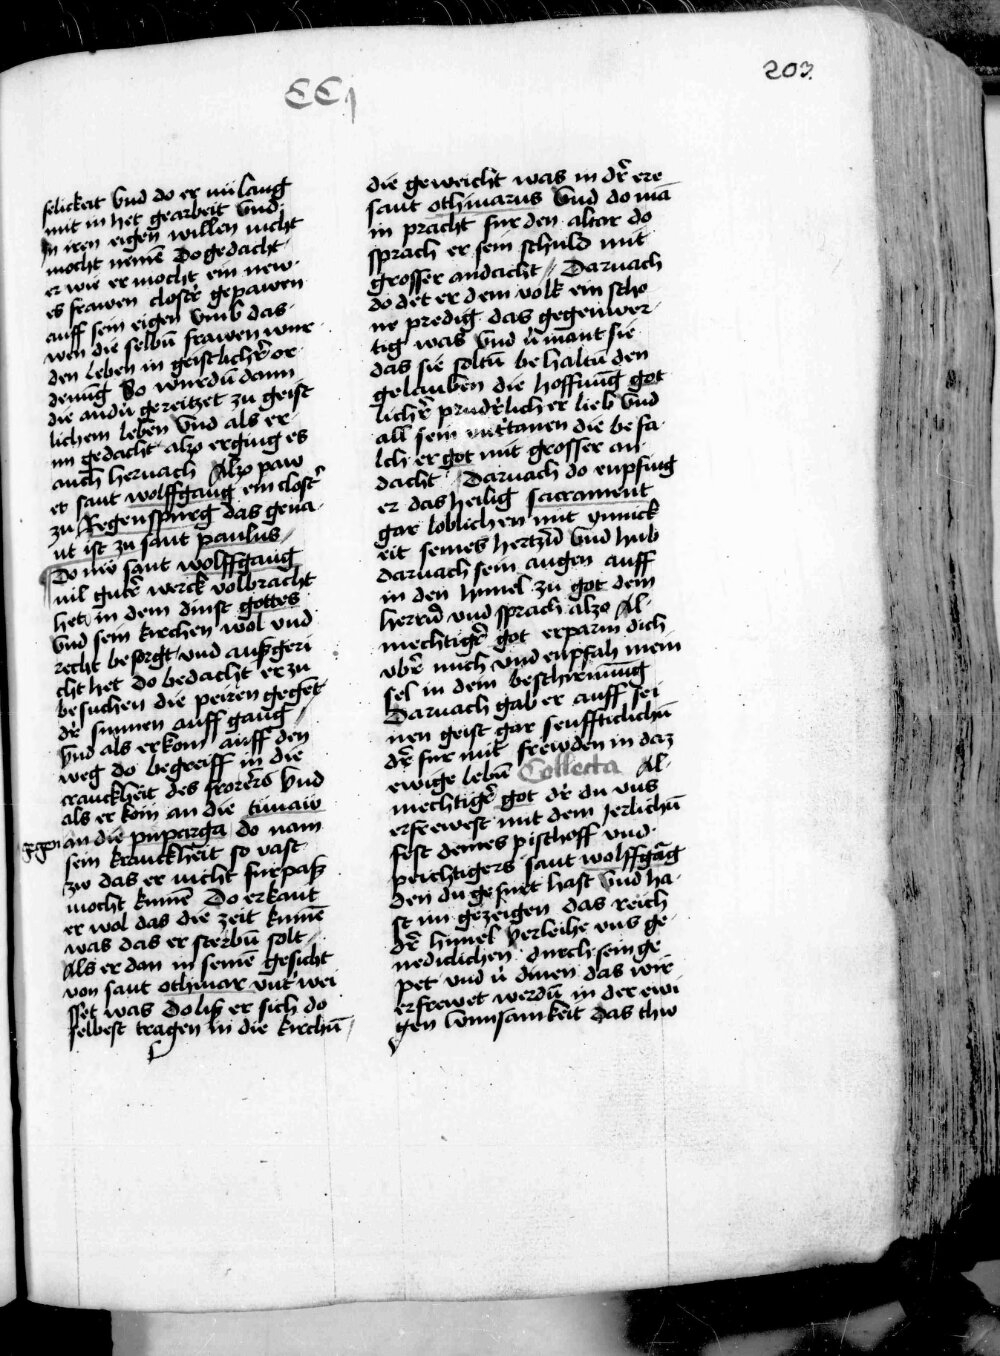 203
CCI
selickeit Vnd do er nu lang
mit in het gearbeit vnd
in iren eigen willen nicht
mocht nemē Do gedacht
er wie er mocht ein new
es frawen closter gepawen
auff sein eigen Vmb das
wen die selbn̄ frawen wur
den leben in geistlicher or
denūg So wurdn̄ dann
die andn̄ gereitzet zu geist
lichem leben Vnd als er
im gedacht also erging es
auch hernach Also paw
et sant wolffgang ein clost̄
zu Regenspurg das gena
nt ist zu sant paulus
Do nw sant wolffgang
vil guter werck volbracht
het in dem dinst gottes
Vnd sein kirchen wol vnd
recht besorgt vnd außgeri
cht het Do bedacht er zu
besuchen die peiren geget
dr̄ sunnen auff gang
Vnd als er kom auff den
weg do begreiff in die
kranckheit des frorers Vnd
als er kom an die tunaw
gegen an die puparga do nam
sein kranckheit so vast
zw das er nicht furpaß
mocht kumē Do erkant
er wol das die zeit kumē
was das er sterbn̄ solt
Als er dan in seinē gesicht
von sant othmar vnt̄wei
sset was Do liß er sich do
selbest tragen in die kirchn̄
die geweicht was in dr̄ ere
sant othmarus Vnd do mā
in pracht fur den altar do
sprach er sein schuld mit
grosser andacht Darnach
do det er dem volk ein scho
ne predig das gegenwer
tig was Vnd v̄mant sie
das sie soltn̄ behaltn̄ den
gelauben die hoffnūg got
licher prudr̄licher lieb Vnd
all sein vntertanen die befa
lch er got mit grosser an
dacht Darnach do enpfing
er das heilig sacrament
gar loblichen mit ynnick
eit seines hertzn̄ Vnd hub
darnach sein augen auff
in den himel zu got dem
herrn̄ vnd sprach also Al
mechtiger got erparm dich
vber mich vnd enpfah mein
sel in dein beschirmūng
Darnach gab er auff sei
nen geist gar seufftiklichn̄
dr̄ fur mit frewden in daz
ewige lebn̄ Collecta Al
mechtiger got dr̄ du vns
erfrewest mit dem Jerlichn̄
fest deines pischoff vnd
peichtigers sant wolffgāg
den du gefurt hast Vnd ha
st im gezeigen das reich
dr̄ himel Verleihe vns ge
nediclichen durch sein ge
pet vnd v̄dinen das wir
erfrewet werdn̄ in der ewi
gen Wunsamkeit Das thw